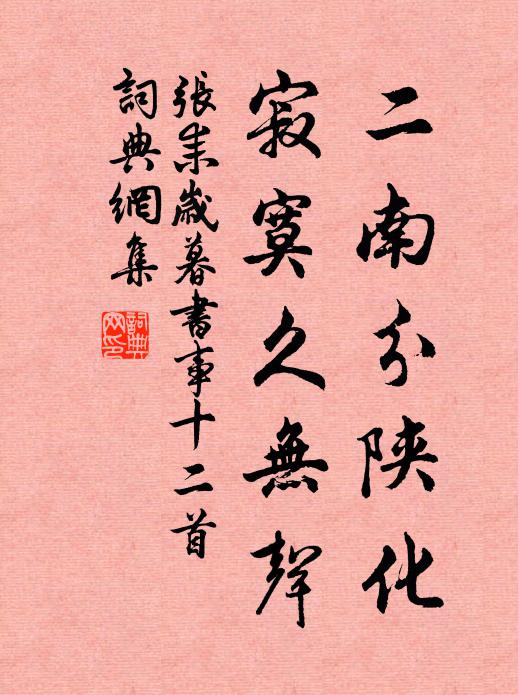 二南分陝化
寂寞久無聲
張耒歲暮書事十二首
詞典網集
詞典
网印